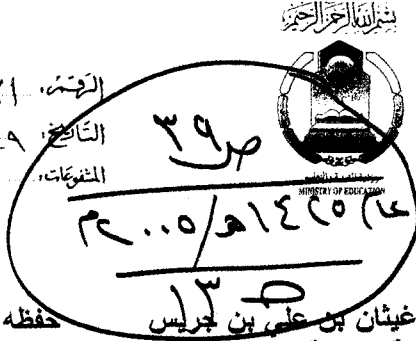 بسم الله الرحمن الرحيم
الرقم:
التاريخ:
المشفوعات:
ص ٣٩
MINISTRY OF EDUCATION
عام ١٤٢٥هـ/٢٠٠٥م
ص ١٣
غيثان بن علي بن جريس حفظه